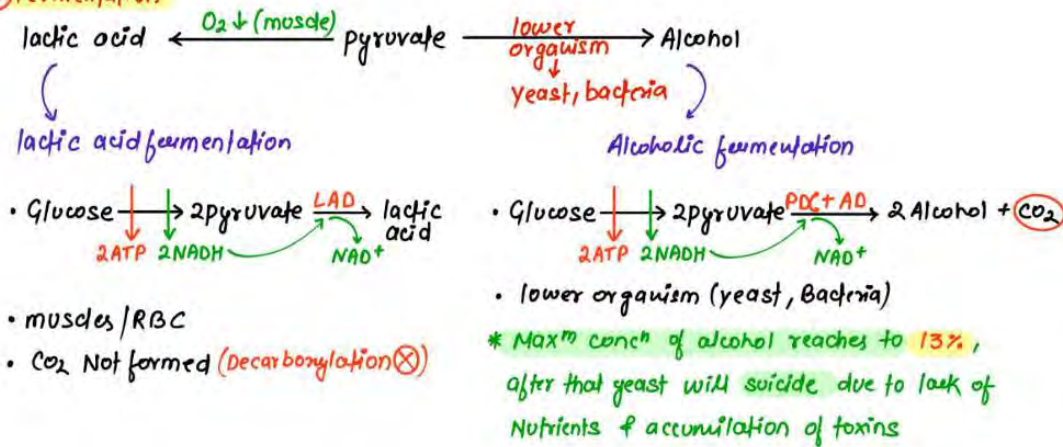 lactic acid ← O₂↓ (muscle) pyruvate lower organism → Alcohol
↓
yeast, bacteria
lactic acid feumentation
Alcoholic feumentation
• Glucose → 2pyruvate LAD → lactic acid
2ATP 2NADH NAD⁺
• muscles/RBC
• CO₂ Not formed (Decarboxylation ⊗)
• Glucose → 2pyruvate PDC+AD → 2 Alcohol + CO₂
2ATP 2NADH NAD⁺
• lower organism (yeast, Bacteria)
* Maxᵐ concⁿ of alcohol reaches to 13%,
after that yeast will suicide due to lack of
Nutrients & accumilation of toxins